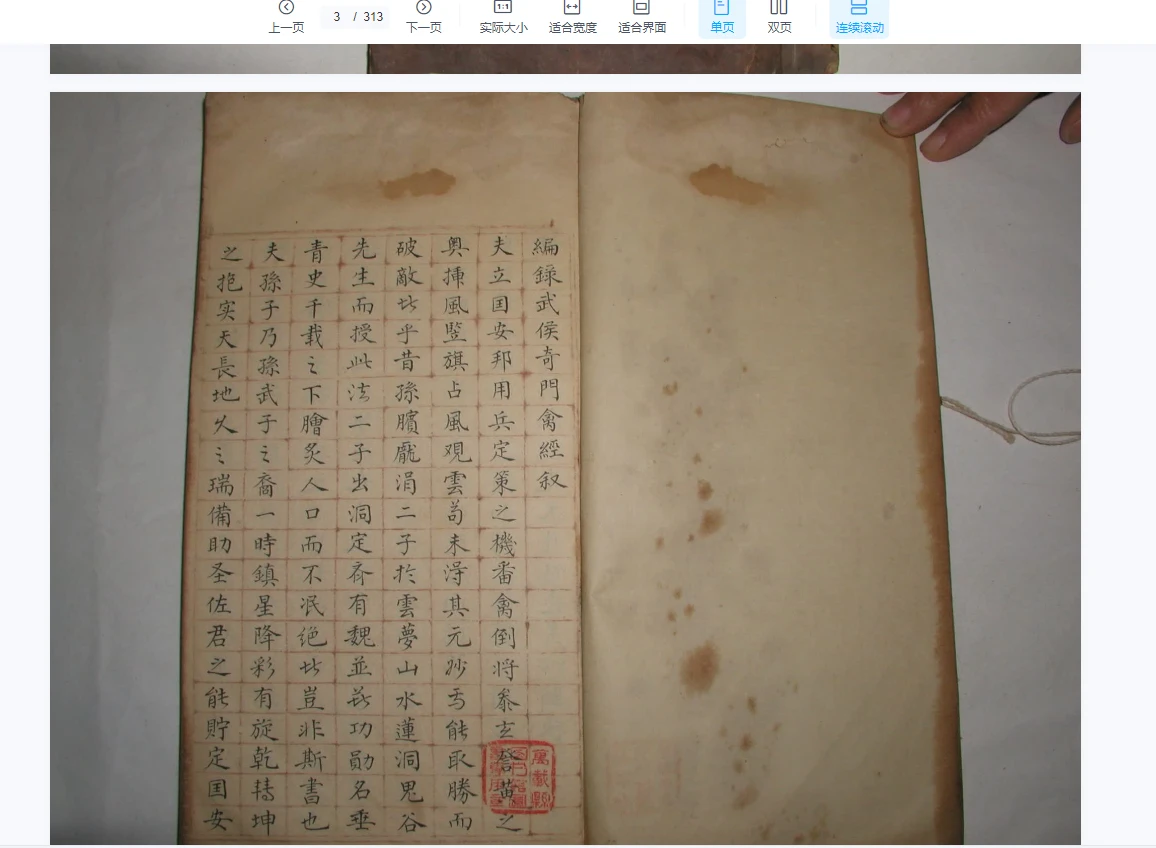 上一页
3 / 313
下一页
实际大小
适合宽度
适合界面
单页
双页
连续滚动
編錄武侯奇門禽經叙
夫立国安邦用兵定策之機番禽倒将叅玄 黄之
奥揷風竪旗占風观雲苟未淂其元妙焉能取勝而
破敵此乎昔孫臏龎涓二子扵雲夢山水蓮洞鬼谷
先生而授此法二子出洞定斉有魏並 功勛名垂
青史千載之下膾炙人口而不泯绝此豈非斯書也
夫孫子乃孫武子之裔一時鎮星降彩有旋乾転坤
之抱实天長地久之瑞備助圣佐君之能貯定国安
萬載縣